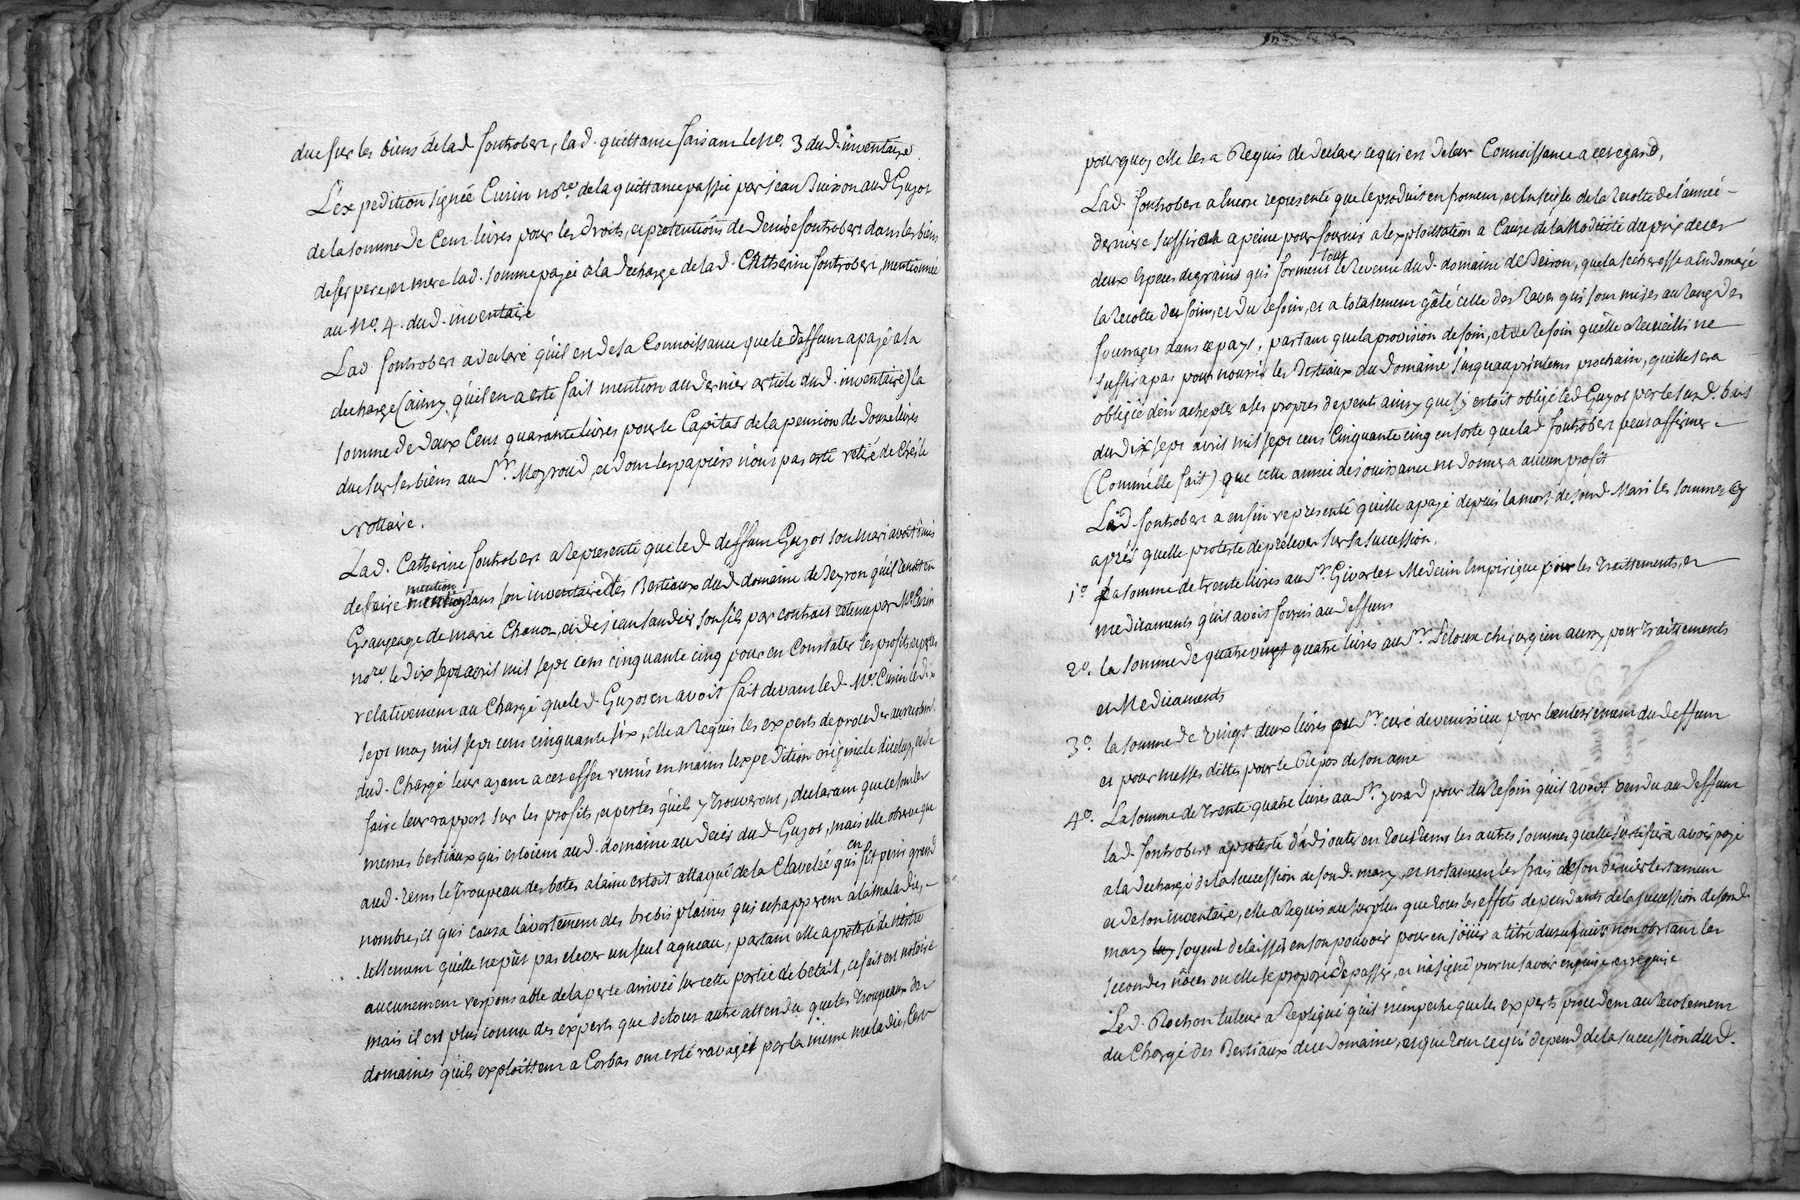 due sur les biens de lad fontrobert, lad. quittance faisant le no. 3 dud. inventaire.
L'expedition signée Cusin nore. de la quittance passée par jean Buisson aud Guyot
de la somme de Cent livres pour les droits, et pretentions de Denise fontrobert dans les biens
de ses pere, et mere lad. somme payée a la decharge de lad. Catherine fontrobert, mentionnée
au no. 4. dud. inventaire
Lad fontrobert a declaré qu'il en de sa Connoissance que le deffunt a payé a la
decharge (ainsy qu'il en a esté fait mention au dernier article dud. inventaire) la
somme de deux Cent quarante livres pour le Capital de la pension de douze livres
due sur ses biens au Sr. Meyroud, et dont les papiers n'ont pas esté retiré de Chés le
Nottaire.
Lad. Catherine fontrobert a Representé que led deffunt Guyot son mari avoit omis
de faire mention dans son inventaire des Bestiaux dud domaine de Peyron qu'il tenoit en
Grangeage de marie Chanoz, et de jean sandier son fils par contrat retenu par Me Cusin
nore. le dix sept avril mil sept cent cinquante cinq pour en Constater les profits ou pertes
relativement au Chargé que led. Guyot en avoit fait devant led. Me. Cusin le dix
sept may mil sept cent cinquante six, elle a Requis les experts de proceder au recolement
dud. Chargé leur ayant a cet effet remis en mains l'expedition originale dicelluy, et de
faire leur rapport sur les profits, ou pertes qu'ils y trouveront, declarant que ce sont les
memes bestiaux qui estoient aud. domaine au decés dud Guyot, mais elle observe que
aud. tems le troupeau des betes a laine estoit attaqué de la Clavelée qui en fit perir grand
nombre, et qui causa l'avortement des brebis plaines qui echapperent a la maladie,
tellement qu'elle ne put pas elever un seul agneau, partant elle a protesté de n'estre
aucunement responsable de la perte arrivée sur cette partie de betail, ce fait est notoire
mais il est plus connu des experts que de tout autre attendu que les troupeaux des
domaines qu'ils exploittent a Corbas ont esté ravagés par la meme maladie, C'est
pourquoy elle les a Requis de declarer ce qui est de leur Connoissance a cet egard,
Lad. fontrobert a Encore representé que le produit en froment, et en seigle de la Recolte de l'année
derniere suffirat a peine pour fournir a l'exploittation a Cause de la Modicité du prix de ces
deux Especes de grains qui forment tout le Revenu dud. domaine de Peiron, que la secheresse a Endomagé
la Recolte du foin, et du Refoin, et a totalement gâté celle des Raves qui sont mises au Rang des
fourrages dans ce pays, partant que la provision de foin, et de Refoin qu'elle a Recueilli ne
suffira pas pour nourir les Bestiaux du domaine jusquau printems prochain, qu'elle sera
obligée d'en achepter a ses propres depents ainsy que s'y estoit obligé led Guyot par le susd. bail
du dix sept avril mil sept cent Cinquante cinq en sorte que lad fontrobert peut affirmer
(Comme elle fait) que cette année de jouissance ne donnera aucun profit
Lad. fontrobert a enfin representé qu'elle a payé depuis la mort de sond Mari les sommes cy
aprés quelle proteste de prélever sur sa succession.
1o. La somme de trente livres au Sr. Givorlet Medecin Empirique pour les traittements, et
medicaments qu'il avoit fourni au deffunt
2o. la somme de quatre vingt quatre livres au Sr. Leloux chirurgien aussy pour traittements
et Medicaments
3o. la somme de vingt deux livres au Sr. curé de venissieu pour l'enterrement du deffunt
et pour messes dittes pour le Repos de son ame
4o. La somme de trente quatre livres au Sr. Girard pour du Refoin qu'il avoit vendu au deffunt
lad. fontrobert a protesté d'adjouter en tout tems les autres sommes quelle justifiera avoir payé
a la decharge de la succession de sond. mary, et notament les frais de son dernier testament
et de son inventaire, elle a Requis au surplus que tous les effets dependants de la succession de sond.
mary soyent delaissés en son pouvoir pour en jouïr a titre d'usufruit nonobstant les
secondes nôces ou elle se propose de passer, et n'a signé pour ne savoir enquise et requise
Led. Rochon tuteur a Repliqué qu'il n'empeche que les experts procedent au Recolement
du Chargé des Bestiaux dud domaine, et que tout ce qui depend de la succession dud.